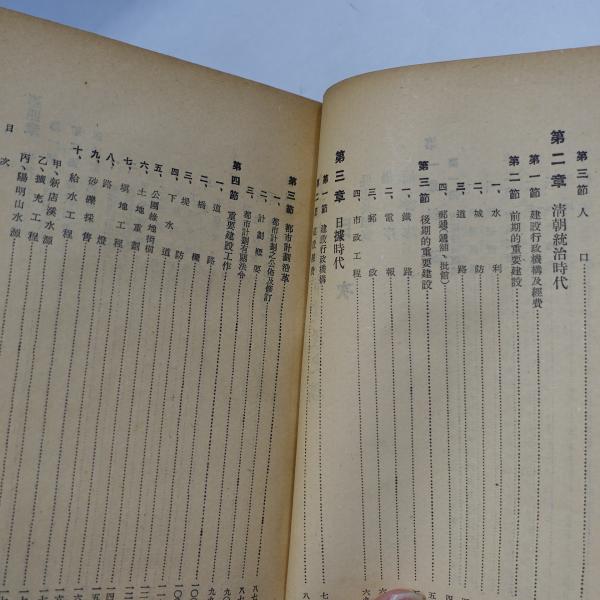 第三節 人口
第二章 清朝統治時代
第一節 建設行政機構及經費
第二節 前期的重要建設
一、水利
二、城防
三、道路
四、郵遞
第三節 後期的重要建設
一、鐵路
二、電報
三、郵政
四、市政工程
第三章 日據時代
第一節 建設行政機構
第三節 都市計劃沿革
一、都市計劃之公佈及修訂
二、計劃概要
三、都市計劃有關法令
第四節 重要建設工作
一、道路
二、橋樑
三、堤防
四、下水道
五、公園綠地街樹
六、土地重劃
七、填地工程
八、路燈
九、砂礫採售
十、給水工程
甲、新店溪水源
乙、擴充工程
丙、陽明山水源
目次